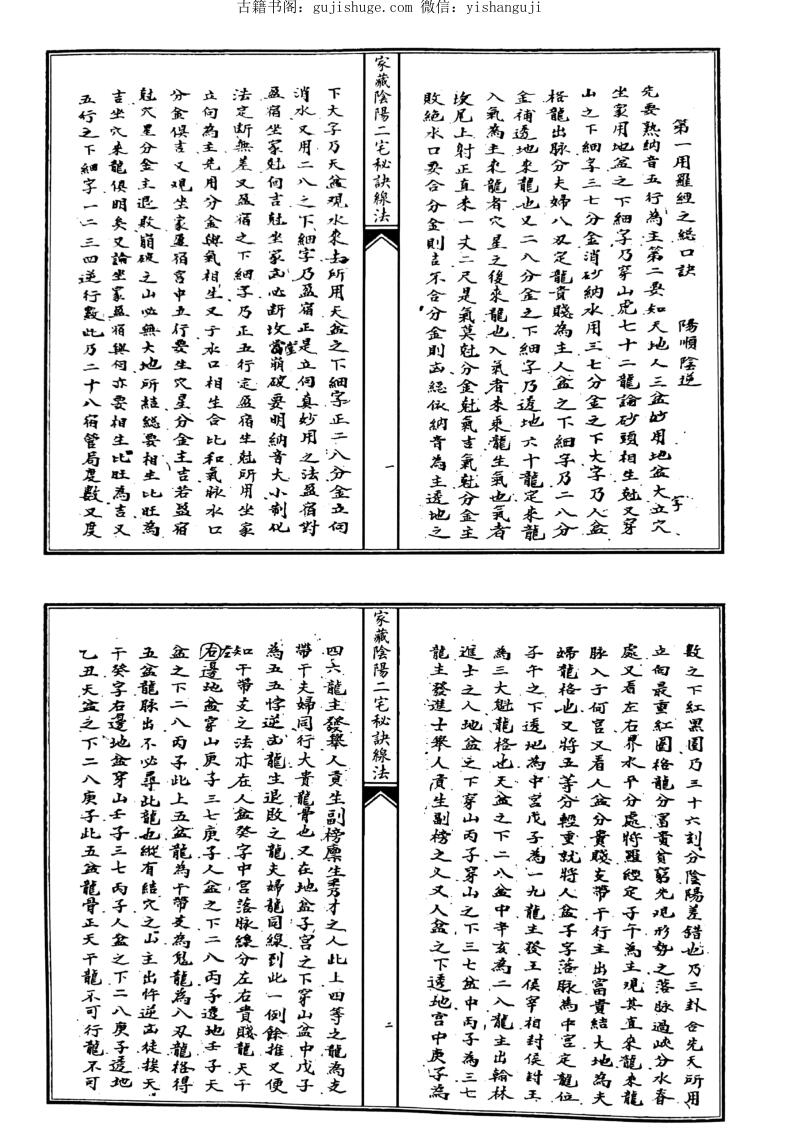 古籍书阁：gujishuge.com 微信：yishanguji
第一用羅經之總口訣 陽順陰逆
先要熟納音五行為主第二要知天地人三盆妙用地盆大字立穴
坐家用地盆之下細字乃穿山虎七十二龍論砂頭相生尅又穿
山之下細字三七分金消砂納水用三七分金之下大字乃人盆
格龍出脉分夫婦八刄定龍貴賤為主人盆之下細字乃二八分
金補透地來龍也又二八分金之下細字乃透地六十龍定來龍
入氣為主來龍者穴星之後來龍也入氣者來乘龍生氣也氣者
坟尾上射正直來一丈二尺是氣莫尅分金尅氣吉氣尅分金主
敗絕水口要合分金則吉不合分金則凶總依納音為主透地之
家藏陰陽二宅秘訣線法
一
下大字乃天盆观水來去所用天盆之下細字正二八分金立向
消水又用二八之下細字乃盈宿正是立向真妙用之法盈宿對
盈宿坐家尅向吉尅坐家凶必断坟當堂崩破要明納音大小制化
法定断無差又盈宿之下細字乃正五行定盈宿生尅所用坐家
立向為主先用分金與氣相生又于水口相生合比和氣脉水口
分金俱吉又观坐家盈宿宫中五行要生穴星分金主吉若盈宿
尅穴星分金主退敗崩破之山必無大地所結總要相生比旺為
吉坐穴來龍俱明矣又論坐家盈宿與向亦要相生比旺為吉又
五行之下細字一二三四逆行數此乃二十八宿管局度數又度
數之下紅黑圈乃三十六刻分陰陽差錯也乃三卦合先天所用
立向最重紅圈格龍分富貴貧窮先观形勢之落脉過峽分水脊
處又看左右界水平分處將羅經定子午為主观其直來龍來龍
脉入于何宫又看人盆分貴賤支帶干行主出富貴結大地為夫
婦龍格也又將五等分輕重就將人盆子字落脉為中宫定龍位
子午之下透地為中宫戊子為一九龍主發王侯宰相封侯封王
為三大魁龍格也天盆之下二八盆中辛亥為二八龍主出翰林
進士之人地盆之下穿山丙子穿山之下三七盆中丙子為三七
龍主發進士舉人貢生副榜之义又人盆之下透地宫中庚子為
家藏陰陽二宅秘訣線法
二
四六龍主發舉人貢生副榜廩生秀才之人此上四等之龍為支
帶干夫婦同行大貴龍骨也又在地盆子宫之下穿山盆中戊子
為五五悖逆凶龍生退敗之龍夫婦龍同線到此一例餘推又便
知干帶支之法亦在人盆癸字中宫落脉線分左右貴賤龍天干
右左邊地盆穿山庚子三七庚子人盆之下二八丙子透地壬子天
盆之下二八丙子此上五盆龍為干帶支為鬼龍為八刄龍格得
五盆龍脉出不必尋此龍也縱有結穴之山主出忤逆凶徒挨天
干癸字右邊地盆穿山壬子三七丙子人盆之下二八庚子透地
乙丑天盆之下二八庚子此五盆龍骨正天干龍不可行龍不可